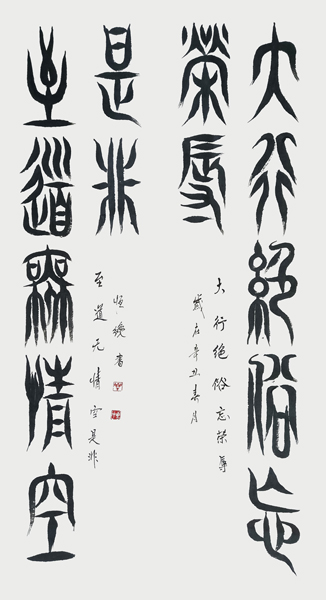 大行絕俗忘
榮辱
大行绝俗忘荣辱
歲在辛丑春月
至道無情空
是非
至道无情空是非
恒書